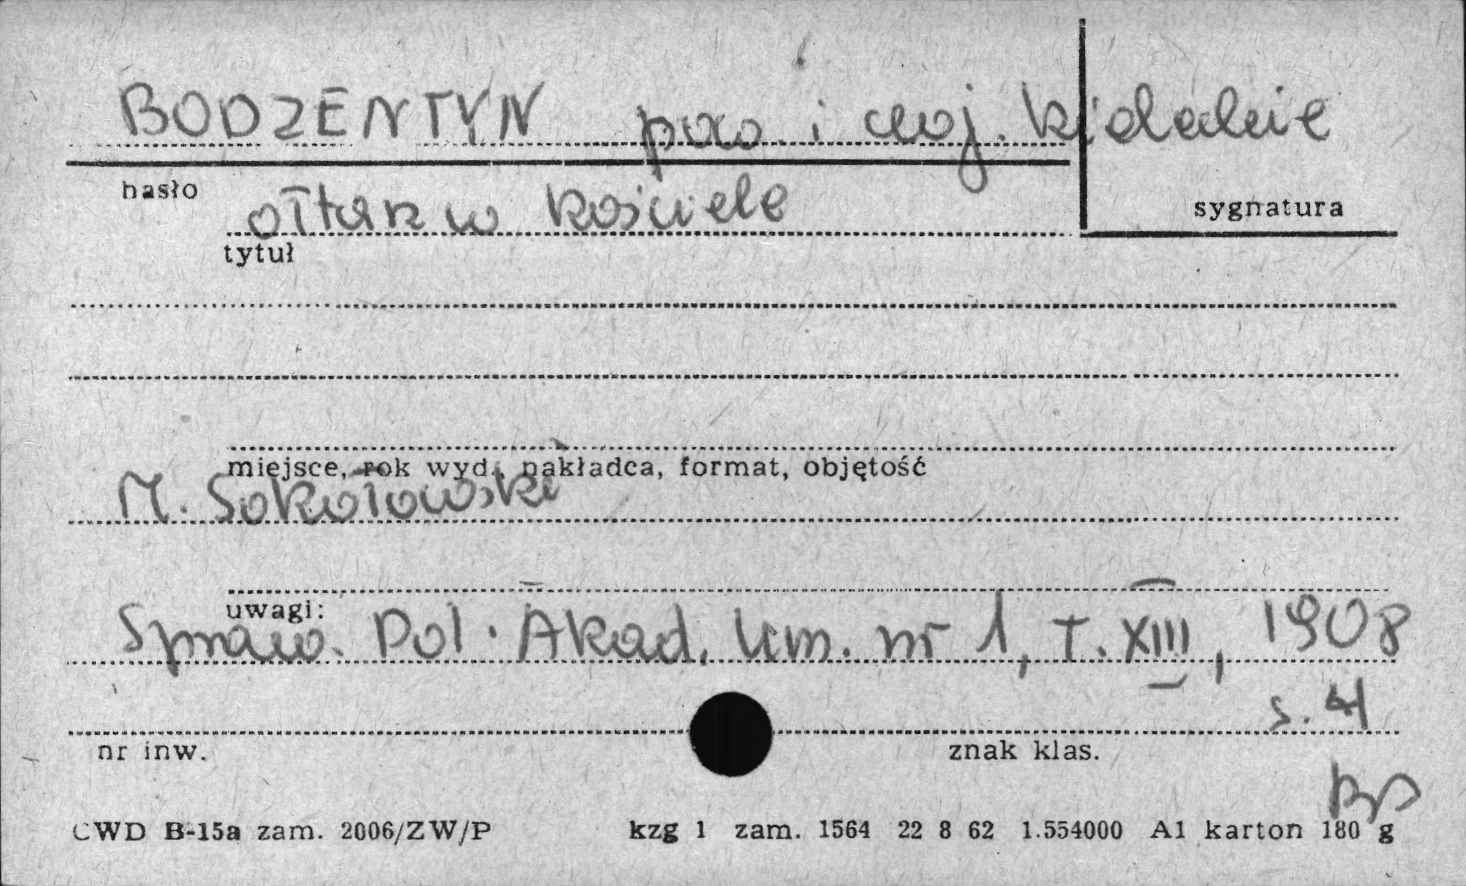 BODZENTYN pow. i woj. kieleckie
hasło
ołtarz w kościele
sygnatura
tytuł
miejsce, rok wyd., nakładca, format, objętość
M. Sokołowski
uwagi:
Spraw. Pol. Akad. Um. nr 1, T. XIII, 1908
s. 4
nr inw.
znak klas.
BP
CWD B-15a zam. 2006/ZW/P kzg 1 zam. 1564 22 8 62 1.554000 A1 karton 180 g